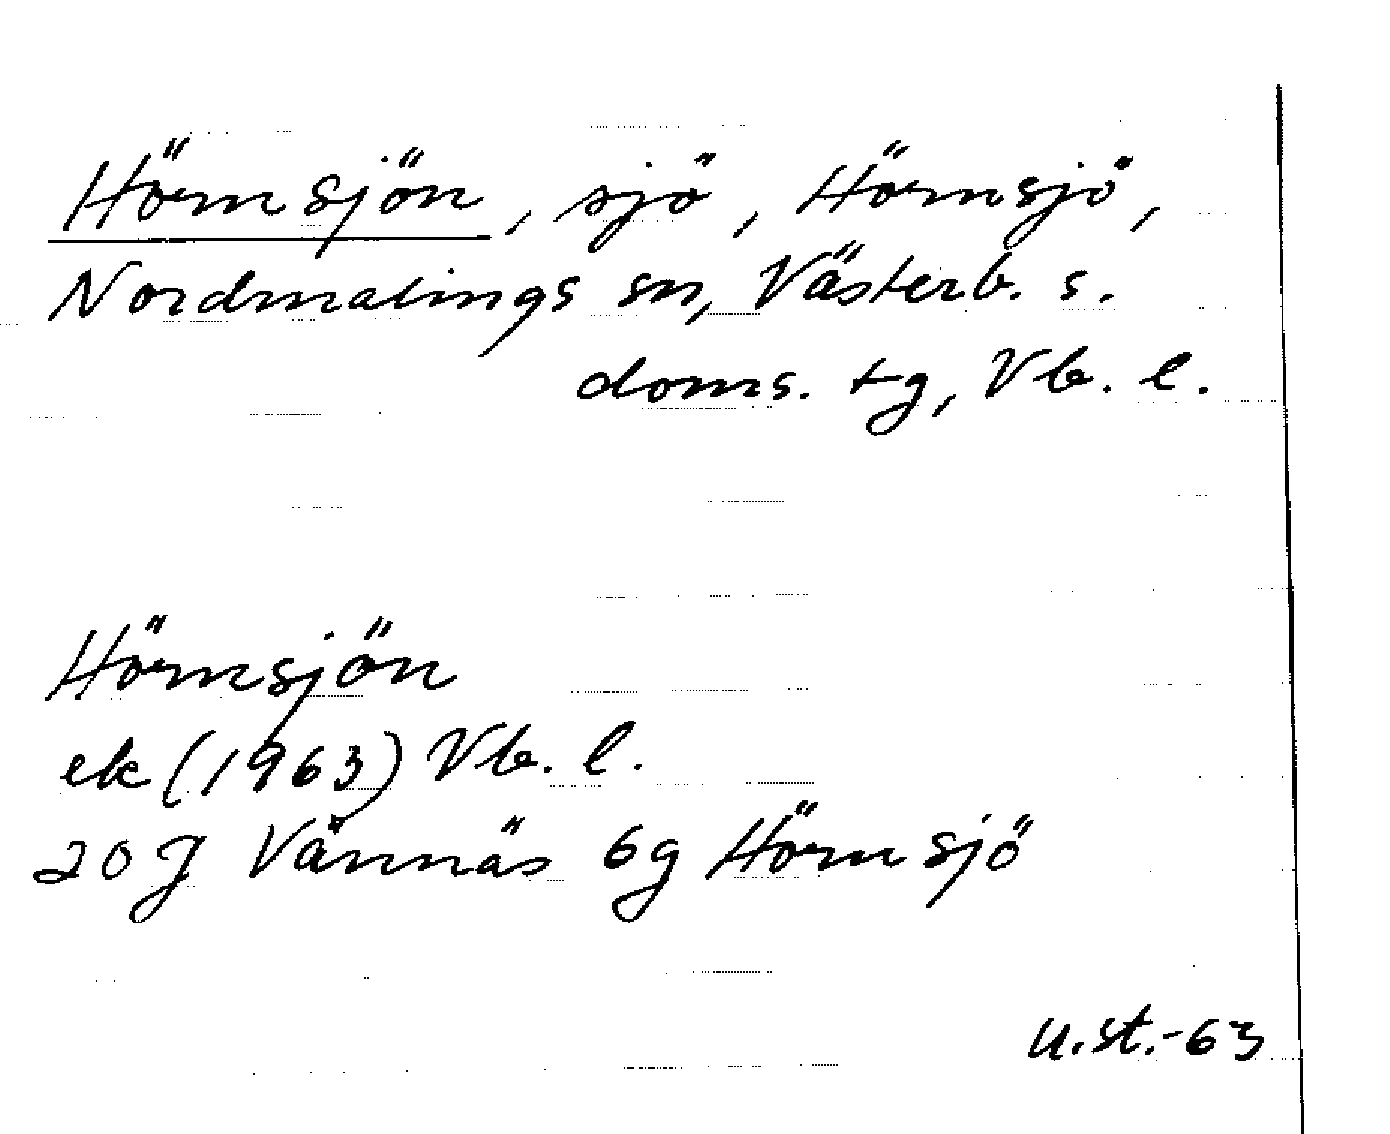 Hörnsjön, sjö, Hörnsjö,
Nordmalings sn, Västerb. s.
doms. tg, Vb. l.
Hörnsjön
ek (1963) Vb. l.
20 J Vännäs 6g Hörnsjö
u.st.-63